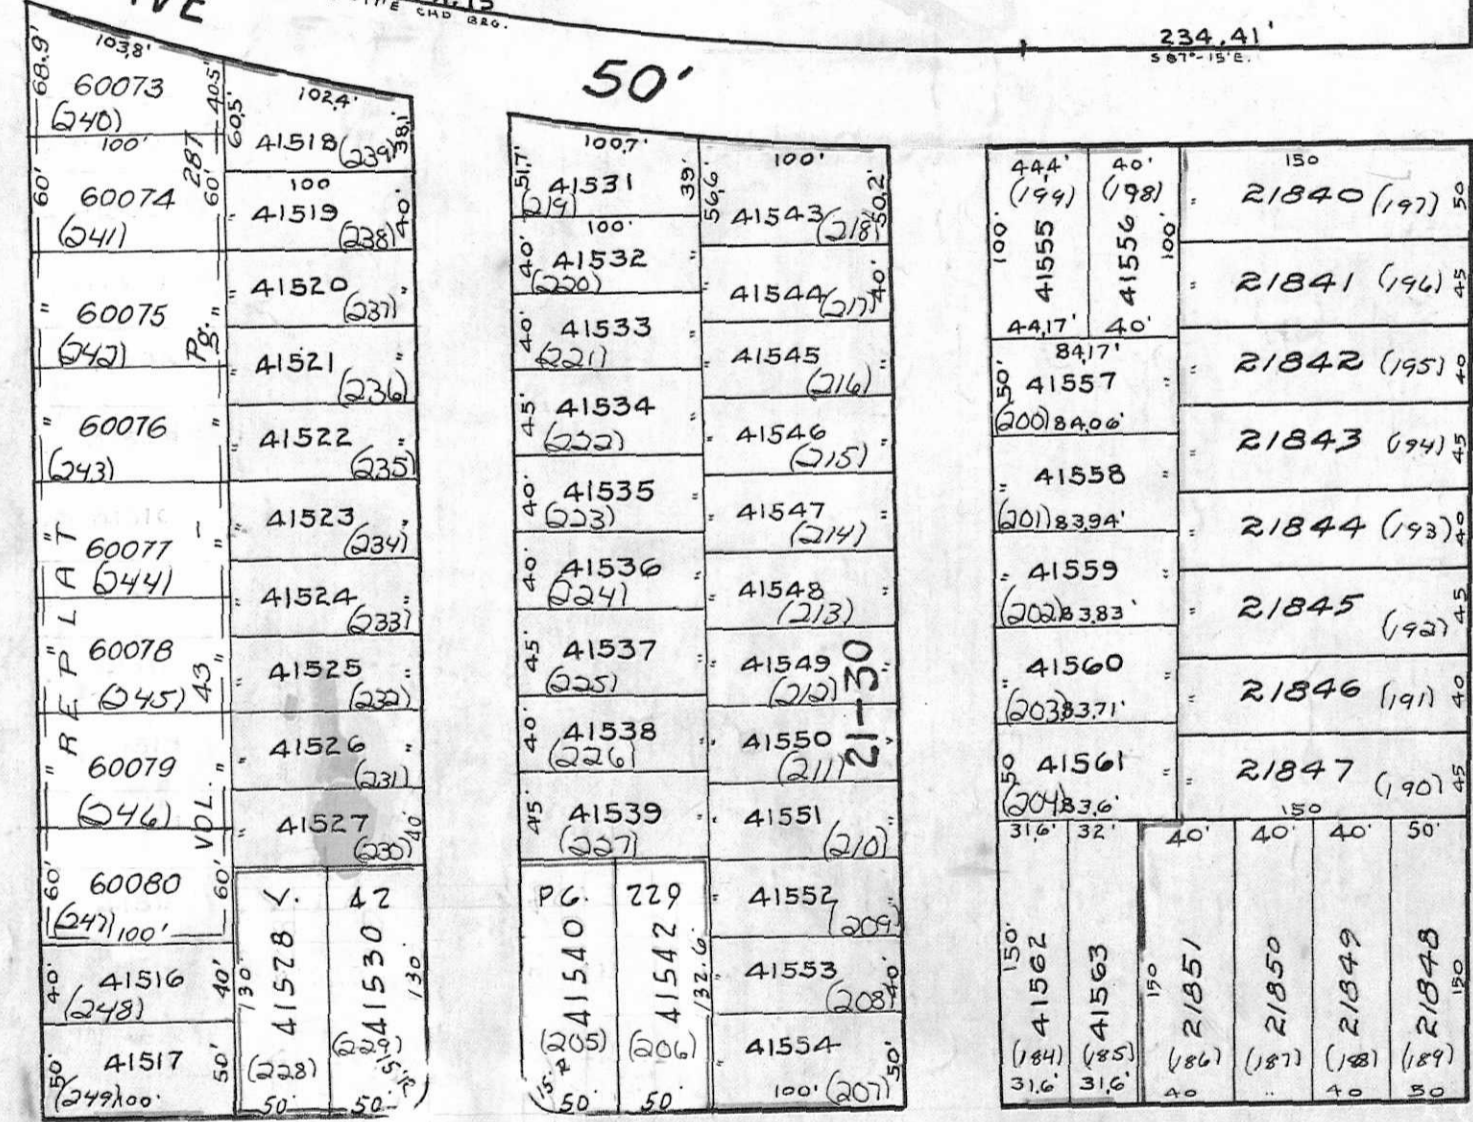 AVE
CHD BRG.
234.41'
S 87°-15' E.
50'
103.8'
68.9'
60073
(240)
40.5'
100'
60'
60074
(241)
60'
"
60075
(242)
"
"
60076
(243)
60077
(244)
"
60078
(245)
"
"
60079
(246)
60'
60080
(247)
100'
60'
"REPLAT"
VOL. 43 - Pg. 287
40'
41516
(248)
40'
50'
41517
(249)
100'
50'
102.4'
60.5'
41518
(239)
38.1'
100
41519
(238)
40'
41520
(237)
"
41521
(236)
"
41522
(235)
"
41523
(234)
"
41524
(233)
"
41525
(232)
"
41526
(231)
"
41527
(230)
40'
V. 42
130'
41528
(228)
50'
41530
(229)
130.
15'R
50'
100.7'
51.7'
41531
(219)
39'
100'
40'
41532
(220)
"
40'
41533
(221)
"
45'
41534
(222)
"
40'
41535
(223)
"
40'
41536
(224)
"
45'
41537
(225)
"
40'
41538
(226)
"
45'
41539
(227)
PG. 229
41540
(205)
15'R
50'
41542
(206)
132.6'
50
100'
56.6'
41543
(218)
50.2'
41544
(217)
40'
41545
(216)
"
41546
(215)
"
41547
(214)
"
41548
(213)
"
41549
(212)
"
41550
(211)
"
21-30
41551
(210)
"
41552
(209)
41553
(208)
40'
41554
100'
(207)
50'
44.4'
(199)
100'
41555
44.17'
40'
(198)
41556
100'
40'
84.17'
50'
41557
(200)
84.06'
"
41558
(201)
83.94'
"
41559
(202)
83.83'
"
41560
(203)
83.71'
50
41561
(204)
83.6'
150
21840 (197) 50
21841 (196) 45
21842 (195) 40
21843 (194) 45
21844 (193) 40
21845 (192) 45
21846 (191) 40
21847 (190) 45
150
31.6'
150'
41562
(184)
31.6'
32'
41563
(185)
31.6'
40'
150
21851
(186)
40
40'
21850
(187)
"
40'
21849
(188)
40
50'
21848
(189)
150
50